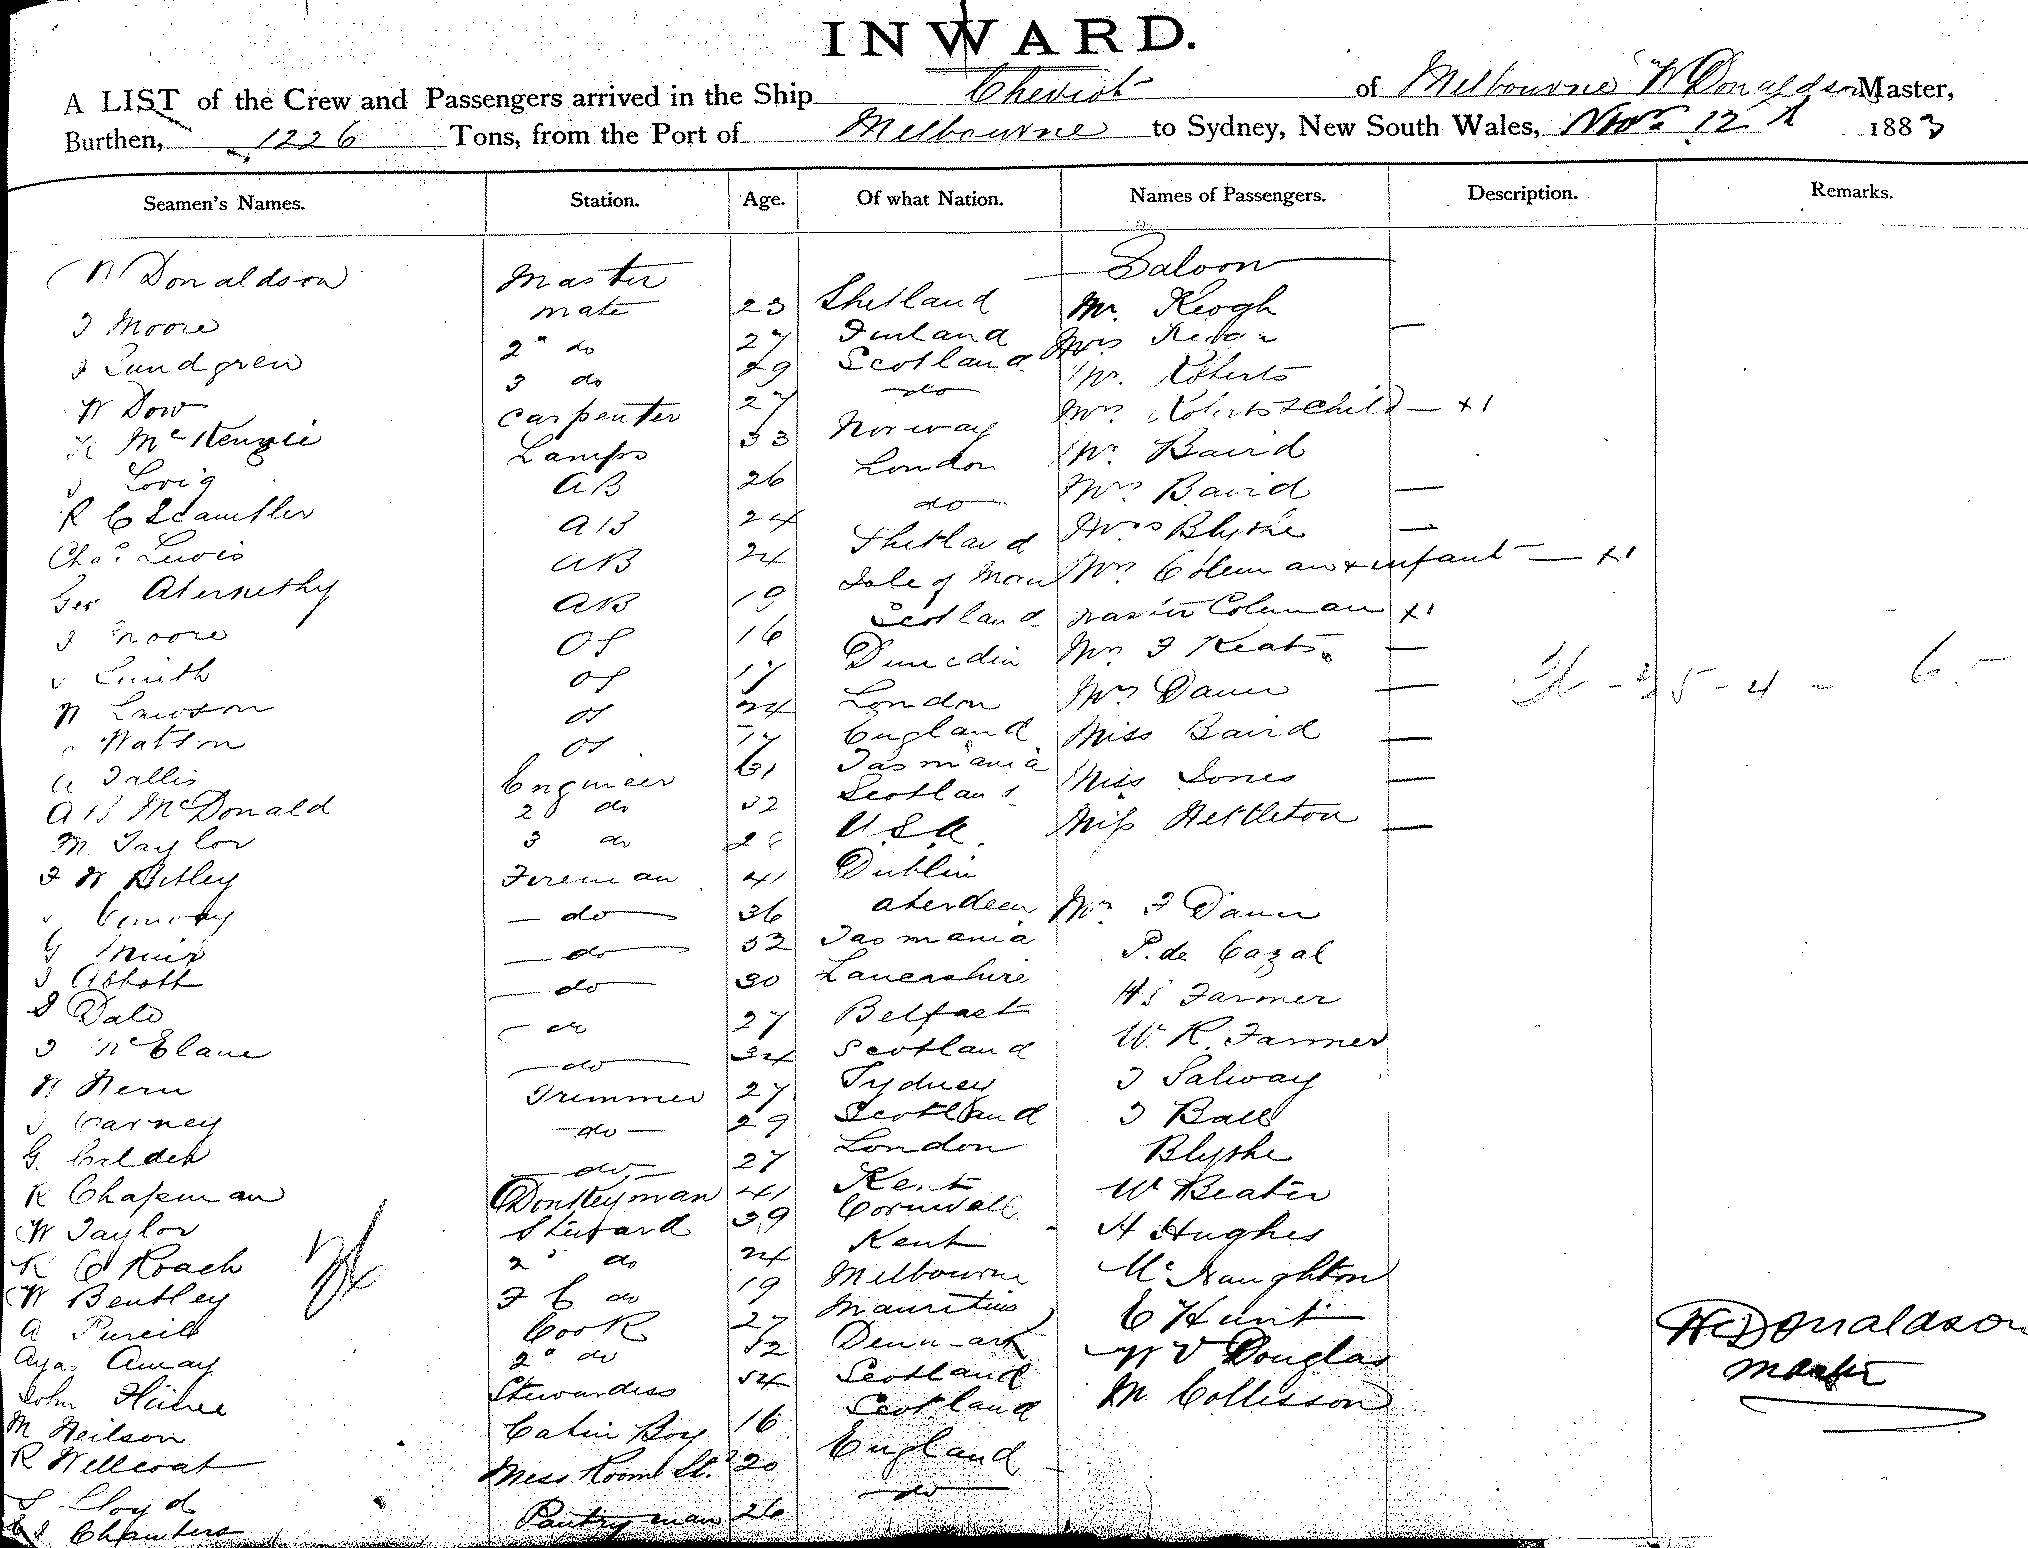 INWARD.
A LIST of the Crew and Passengers arrived in the Ship Cheviot of Melbourne W Donaldson Master,
Burthen, 1226 Tons, from the Port of Melbourne to Sydney, New South Wales, Nov 12th 1883
Seamen's Names. Station. Age. Of what Nation. Names of Passengers. Description. Remarks.
W Donaldson Master Saloon
J Moore mate 23 Shetland Mr. Keogh
J Lundgren 2" do 27 Finland Mrs —
W Dow 3 do 29 Scotland Mr. Roberts
McKenzie Carpenter 27 do Mrs Roberts + child — +1
Lorig Lamps 33 Norway Mr Baird
R C Scantler AB 26 London Mrs Baird —
Chas. Lewis AB 24 do Mrs Blythe —
Geo Abernethy AB 24 Shetland Mrs Coleman + infant — +1
J Moore AB 19 Isle of Man Master Coleman +1
Smith OS 16 Scotland Mrs J Keats —
W Lawson OS 17 Dunedin Mrs —
Watson OS 24 London Miss Baird —
Tallis OS 17 England Miss Jones —
A B McDonald Engineer 31 Tasmania Miss Nettleton —
M Taylor 2 do 32 Scotland
J W Betley 3 do U.S.A.
Fireman 41 Dublin
G Muir do 36 Aberdeen Mr J
J Abbott do 32 Tasmania P. de Cazal
J Dale do 30 Lancashire H S Farmer
J McElane do 27 Belfast W. R. Farmer
W Hern do 34 Scotland J Salway
J Carney Trimmer 27 Sydney J Ball
G. Calder do 29 Scotland Blythe
R Chapman do 27 London W Beater
W Taylor Donkeyman 41 Kent A Hughes
R C Roach Steward 39 Cornwall McNaughton
W Bentley 2" do 24 Kent E Hunt
A F C do 19 Melbourne W V Douglas
Amay Cook 27 Mauritius M Collisson
John 2" do 52 Denmark
M Neilson Stewardess 54 Scotland
R Wellcoat Cabin Boy 16 Scotland
Lloyd Mess Room St. 20 England
Chambers Pantryman 26 do
W Donaldson
Master